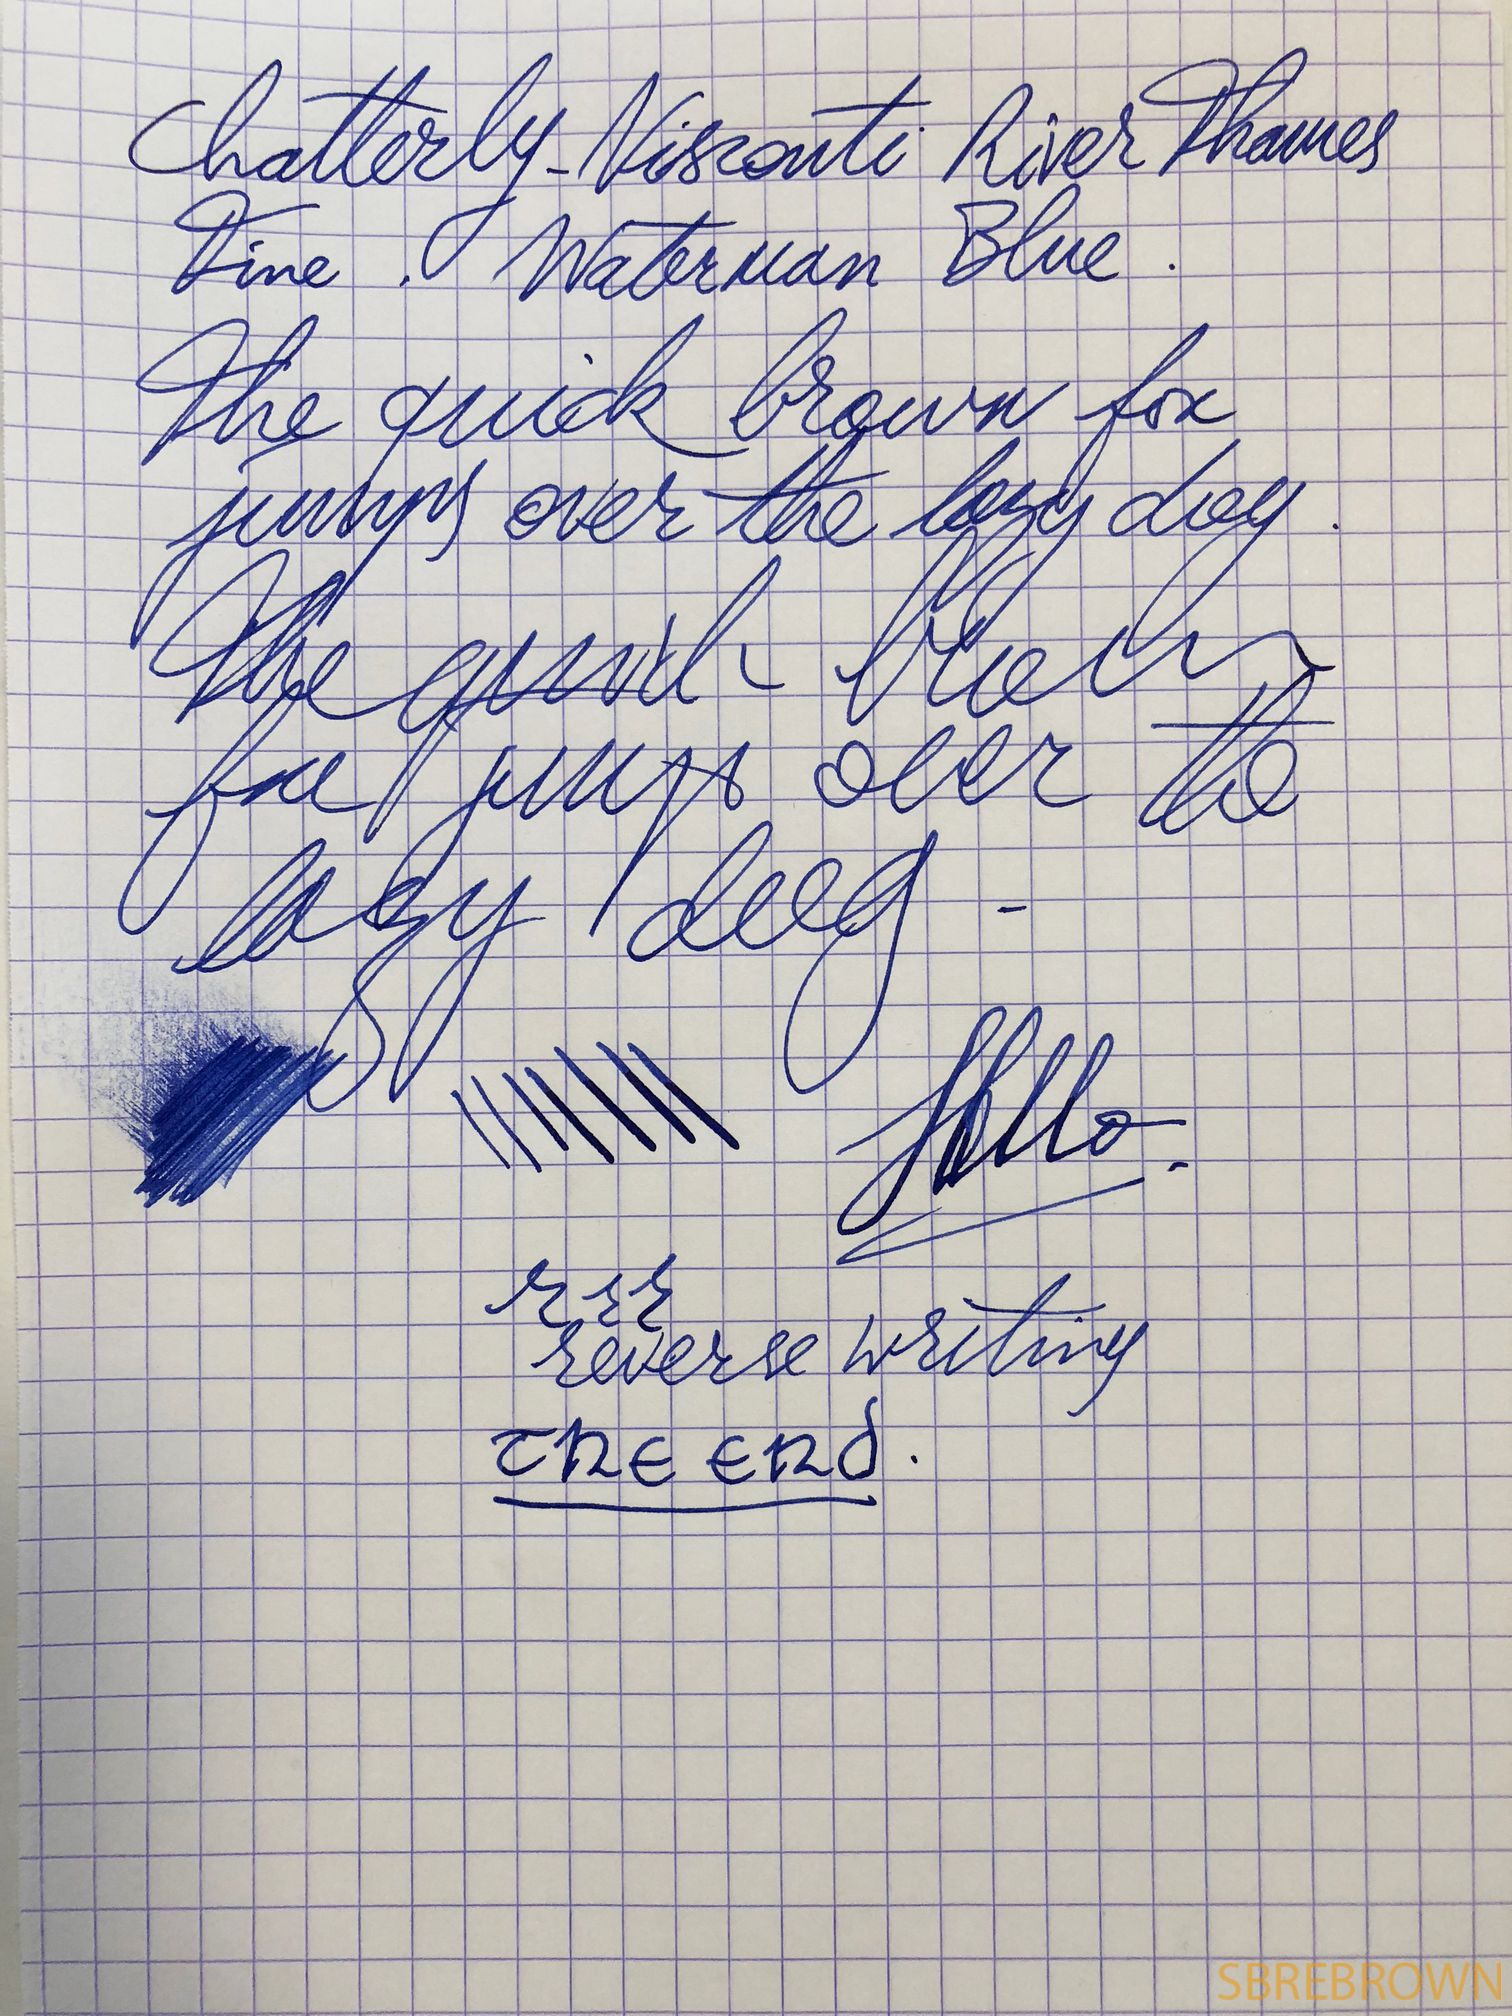 Chatterly - Visconti River Thames
Fine. Waterman Blue.
The quick brown fox
jumps over the lazy dog.
The quick
fox jumps over the
lazy dog -
Hello.
reverse writing
THE END.
SBREBROWN